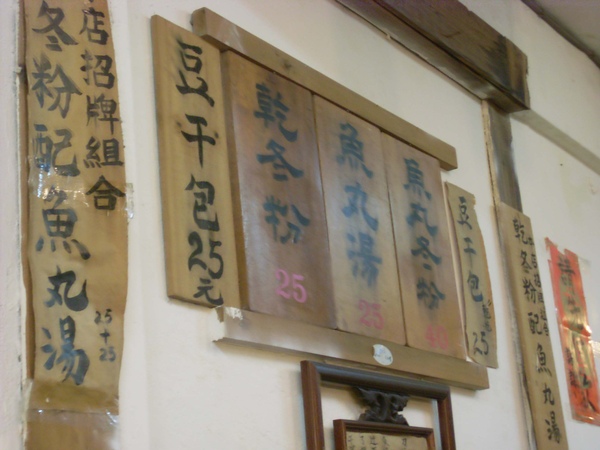 店招牌組合
冬粉配魚丸湯
25+25
豆干包25元
乾冬粉
25
魚丸湯
25
魚丸冬粉
40
豆干包
25
乾冬粉配魚丸湯